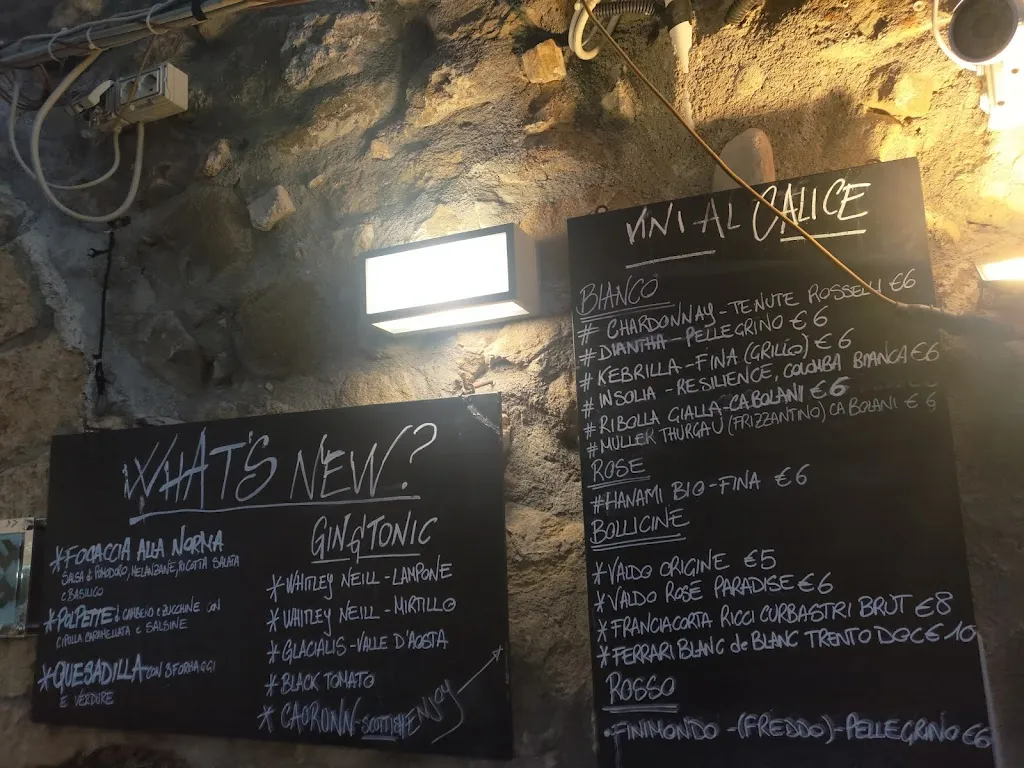 WHAT'S NEW?
*FOCACCIA ALLA NORMA
SALSA di POMODORO, MELANZANE, RICOTTA SALATA
e BASILICO
*POLPETTE di CAMBEIO e ZUCCHINE CON
CIPOLLA CARAMELLATA e SALSINE
*QUESADILLA CON 3 FORMAGGI
E VERDURE
GIN & TONIC
*WHITLEY NEILL - LAMPONE
*WHITLEY NEILL - MIRTILLO
*GLACIALIS - VALLE D'AOSTA
*BLACK TOMATO
*CAORONN - SCOTTISH
ENJOY
VINI AL CALICE
BIANCO
# CHARDONNAY - TENUTE ROSSELLI €6
# DIANTHA - PELLEGRINO €6
# KEBRILLA - FINA (GRILLO) €6
# INSOLIA - RESILIENCE, COLOMBA BIANCA €6
# RIBOLLA GIALLA - CABOLANI €6
# MULLER THURGAU (FRIZZANTINO) CABOLANI €6
ROSE
#HANAMI BIO - FINA €6
BOLLICINE
*VALDO ORIGINE €5
*VALDO ROSÈ PARADISE €6
*FRANCIACORTA RICCI CURBASTRI BRUT €8
*FERRARI BLANC de BLANC TRENTO DOC €10
ROSSO
•FINIMONDO - (FREDDO) - PELLEGRINO €6